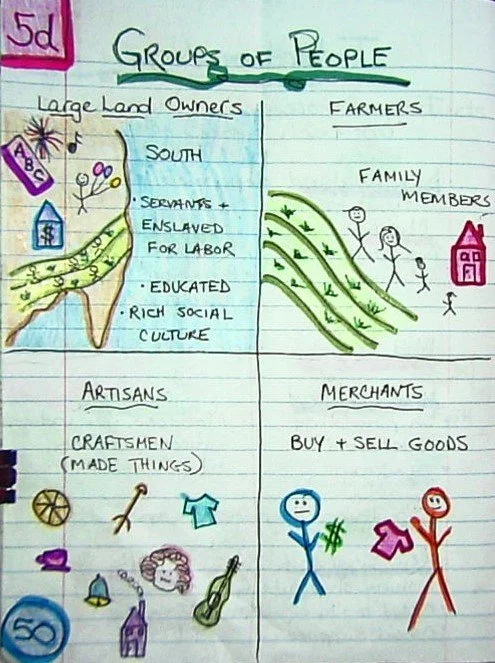 5d
GROUPS OF PEOPLE
Large Land Owners
ABC
$
SOUTH
• SERVANTS +
ENSLAVED
FOR LABOR
• EDUCATED
• RICH SOCIAL
CULTURE
FARMERS
FAMILY
MEMBERS
ARTISANS
CRAFTSMEN
(MADE THINGS)
50
MERCHANTS
BUY + SELL GOODS
$